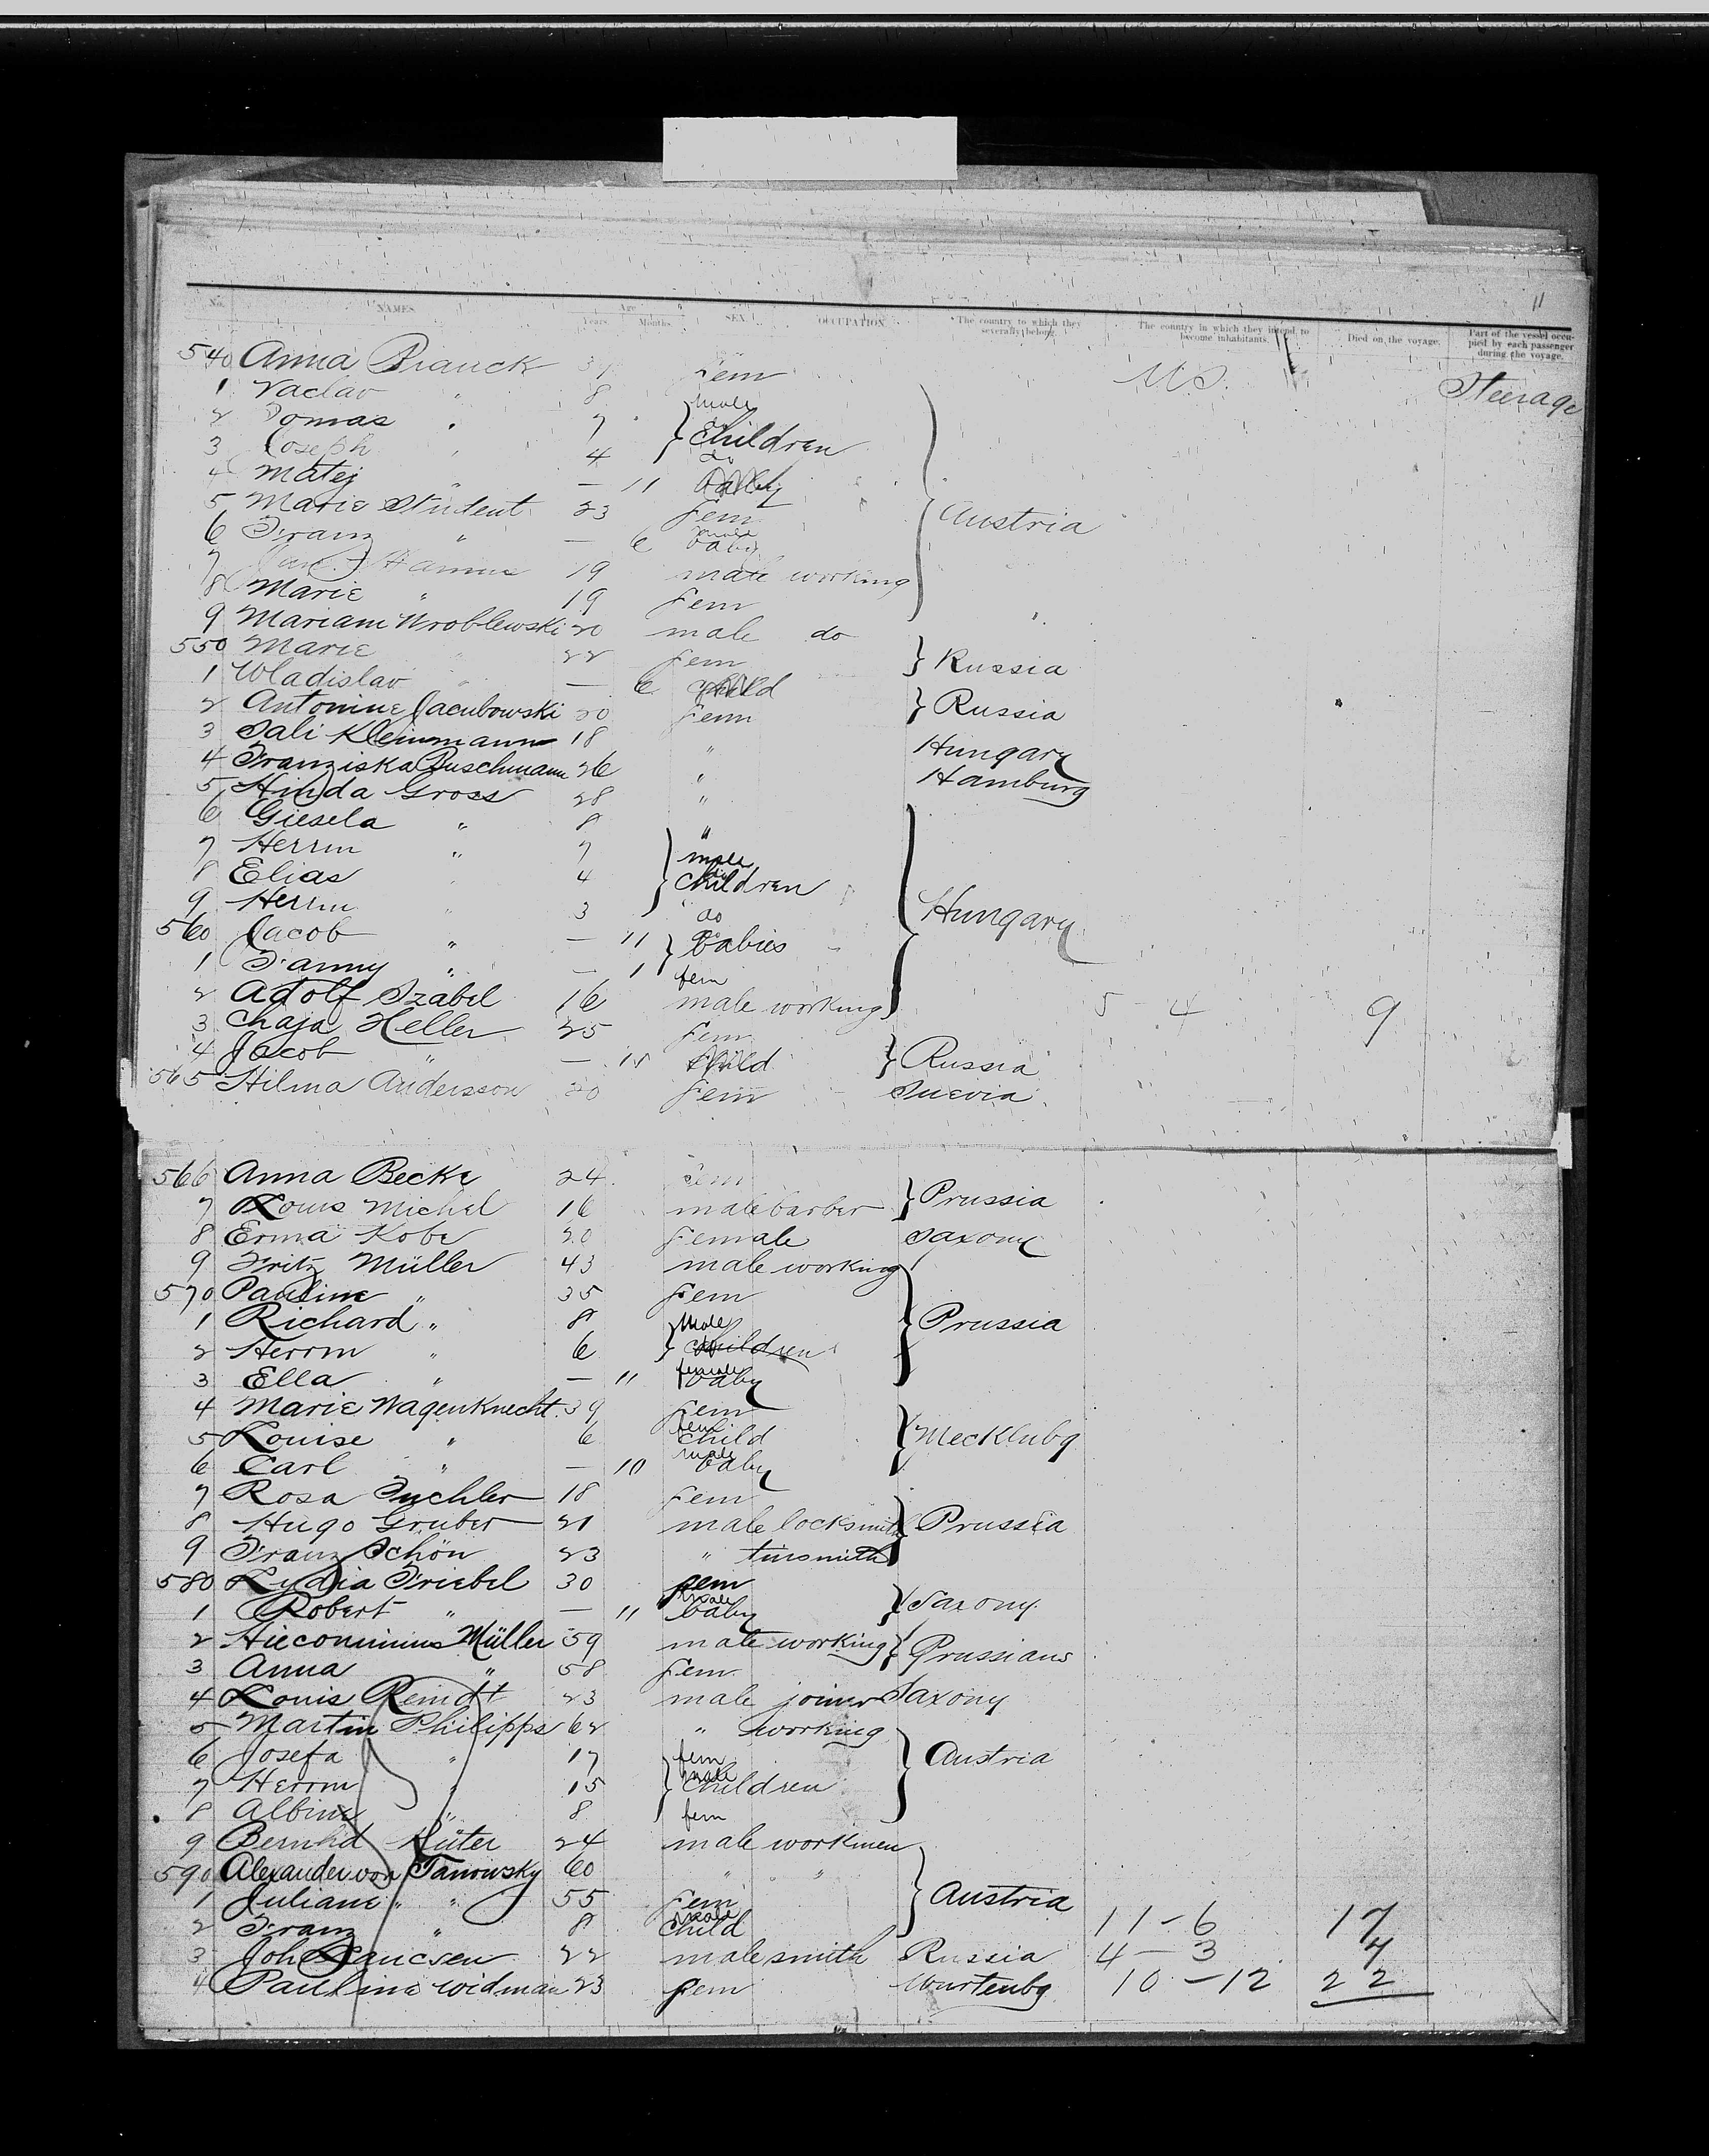 11
No. NAMES Age Years. Months. SEX. OCCUPATION The country to which they severally belong. The country in which they intend to become inhabitants. Died on the voyage. Part of the vessel occupied by each passenger during the voyage.
540 Anna Pranck 31 fem U.S. Steerage
1 Vaclav " 8 male
2 Tomas " 7 do children
3 Joseph " 4 do
4 Matej " — 11 baby
5 Marie Student 23 fem Austria
6 Franz " — 6 male baby
7 19 male working
8 Marie " 19 fem
9 Mariam Wroblewski 20 male do
550 Marie " 22 fem Russia
1 Wladislav " — 6 child
2 Antonine Jacubowski 20 fem Russia
3 Sali Kleinmann 18 " Hungary
4 Franziska Buschmann 26 " Hamburg
5 Hinda Gross 28 "
6 Giesela " 8 "
7 Herrm " 7 male
8 Elias " 4 do children
9 Herrm " 3 do Hungary
560 Jacob " — 11 do babies
1 Fanny " — 1 fem
2 Adolf Szabel 16 male working 5 - 4 9
3 Chaja Heller 25 fem
4 Jacob " — 11 child Russia
565 Hilma Andersson 20 fem Suevia
566 Anna Becke 24 fem
7 Louis Michel 16 male barber Prussia
8 Erma Kobe 20 female Saxony
9 Fritz Müller 43 male working
570 Pauline " 35 fem
1 Richard " 8 male Prussia
2 Herrm " 6 do children
3 Ella " — 11 female baby
4 Marie Wagenknecht 39 fem
5 Louise " 6 fem child Mecklubg
6 Carl " — 10 male baby
7 Rosa Tuchler 18 fem
8 Hugo Gruber 21 male locksmith Prussia
9 Franz Schön 23 " tinsmith
580 Lydia Friebel 30 fem
1 Robert " — 11 male baby Saxony
2 Hieconimus Müller 59 male working Prussians
3 Anna " 58 fem
4 Louis Reindt 23 male joiner Saxony
5 Martin Philipps 62 " working
6 Josefa " 17 fem Austria
7 Herrm " 15 male children
8 Albine " 8 fem
9 Bernhd Küter 24 male workmen
590 Alexander von Tanowsky 60 " "
1 Juliane " " 55 fem Austria
2 Franz " 8 male child 11 - 6 17
3 Joh 22 male smith Russia 4 - 3 7
4 Pauline Widman 23 fem Wurtenbg 10 - 12 22